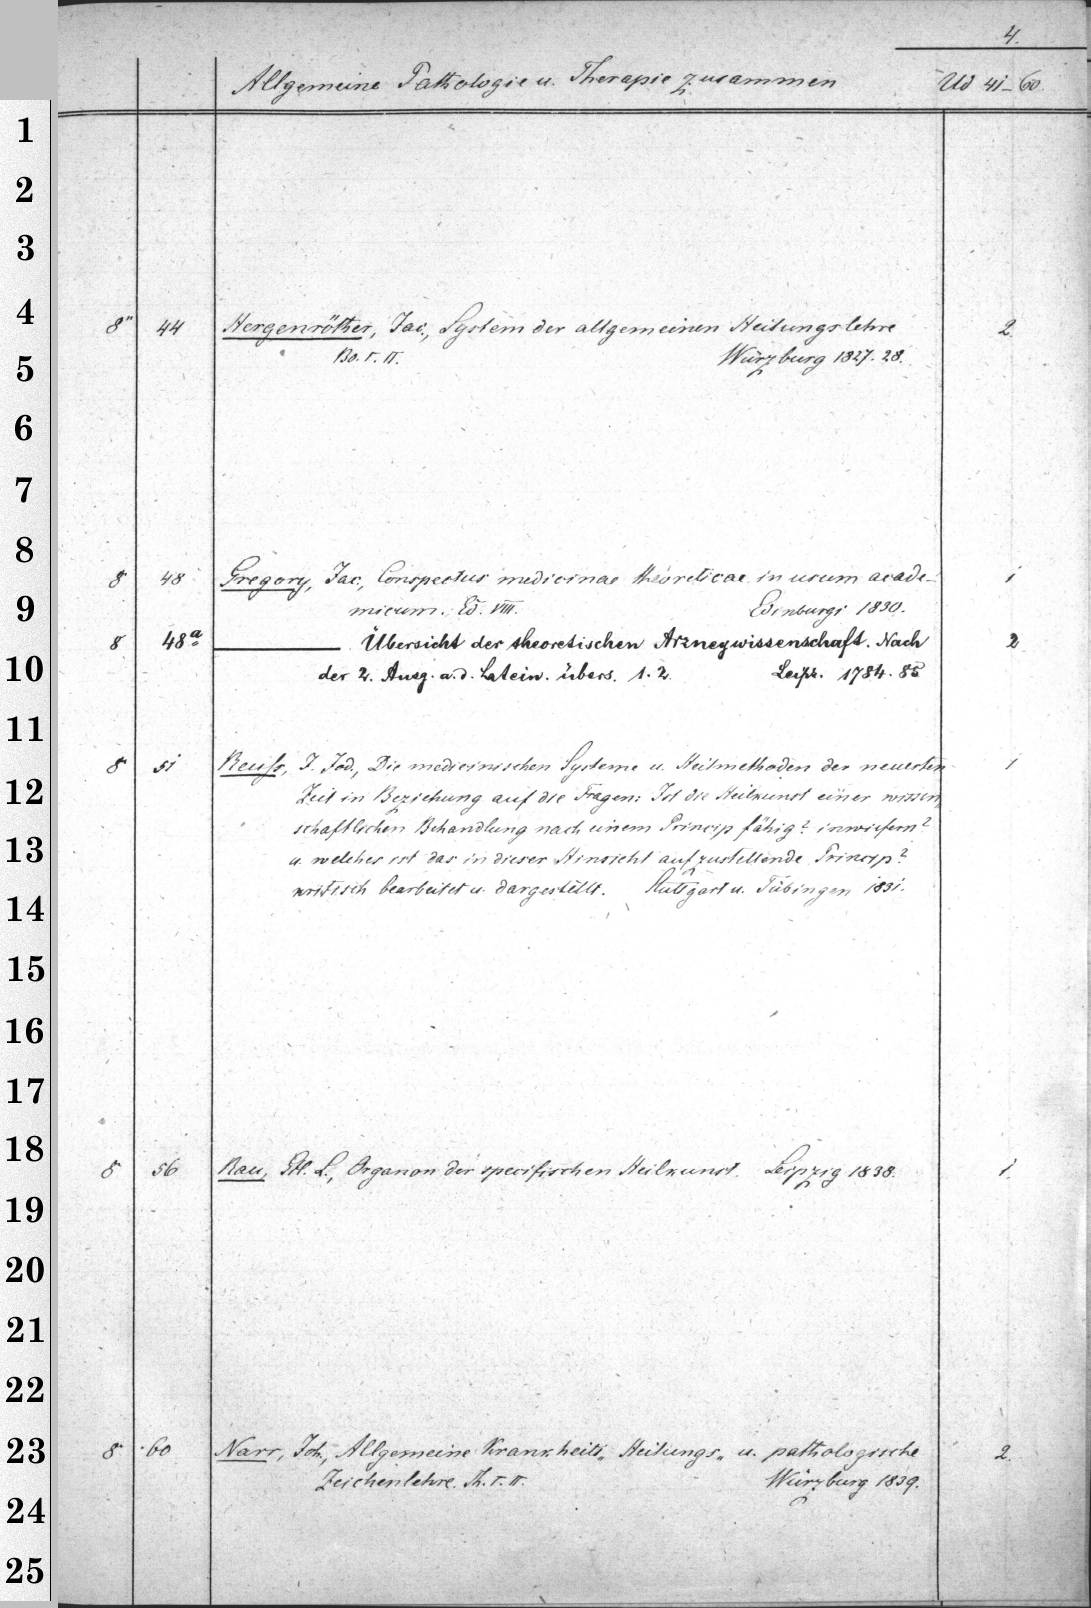 4.
Allgemeine Pathologie u. Therapie zusammen Ud 41-60.
1
2
3
4
8" 44 Hergenröther, Jac., System der allgemeinen Heilungslehre 2.
Bd. I. II. Würzburg 1827. 28.
5
6
7
8
8 48 Gregory, Jac., Conspectus medicinae theoreticae in usum acade- 1
9
micum. Ed. VIII. Edinburgi 1830.
8 48a Übersicht der theoretischen Arzneywissenschaft. Nach 2
10
der 2. Ausg. a. d. Latein. übers. 1. 2. Leipz. 1784. 85
11
8 51 Reuss, J. Jod., Die medicinischen Systeme u. Heilmethoden der neuesten 1
12
Zeit in Beziehung auf die Fragen: Ist die Heilkunst einer wissen
schaftlichen Behandlung nach einem Princip fähig? inwiefern?
13
u. welches ist das in dieser Hinsicht aufzustellende Princip?
kritisch bearbeitet u. dargestellt. Stuttgart u. Tübingen 1831.
14
15
16
17
18
8 56 Rau, Gtl. L., Organon der specifischen Heilkunst. Leipzig 1838. 1.
19
20
21
22
23
8 60 Narr, Joh., Allgemeine Krankheits„ Heilungs„ u. pathologische 2.
Zeichenlehre. Th. I. II. Würzburg 1839.
24
25